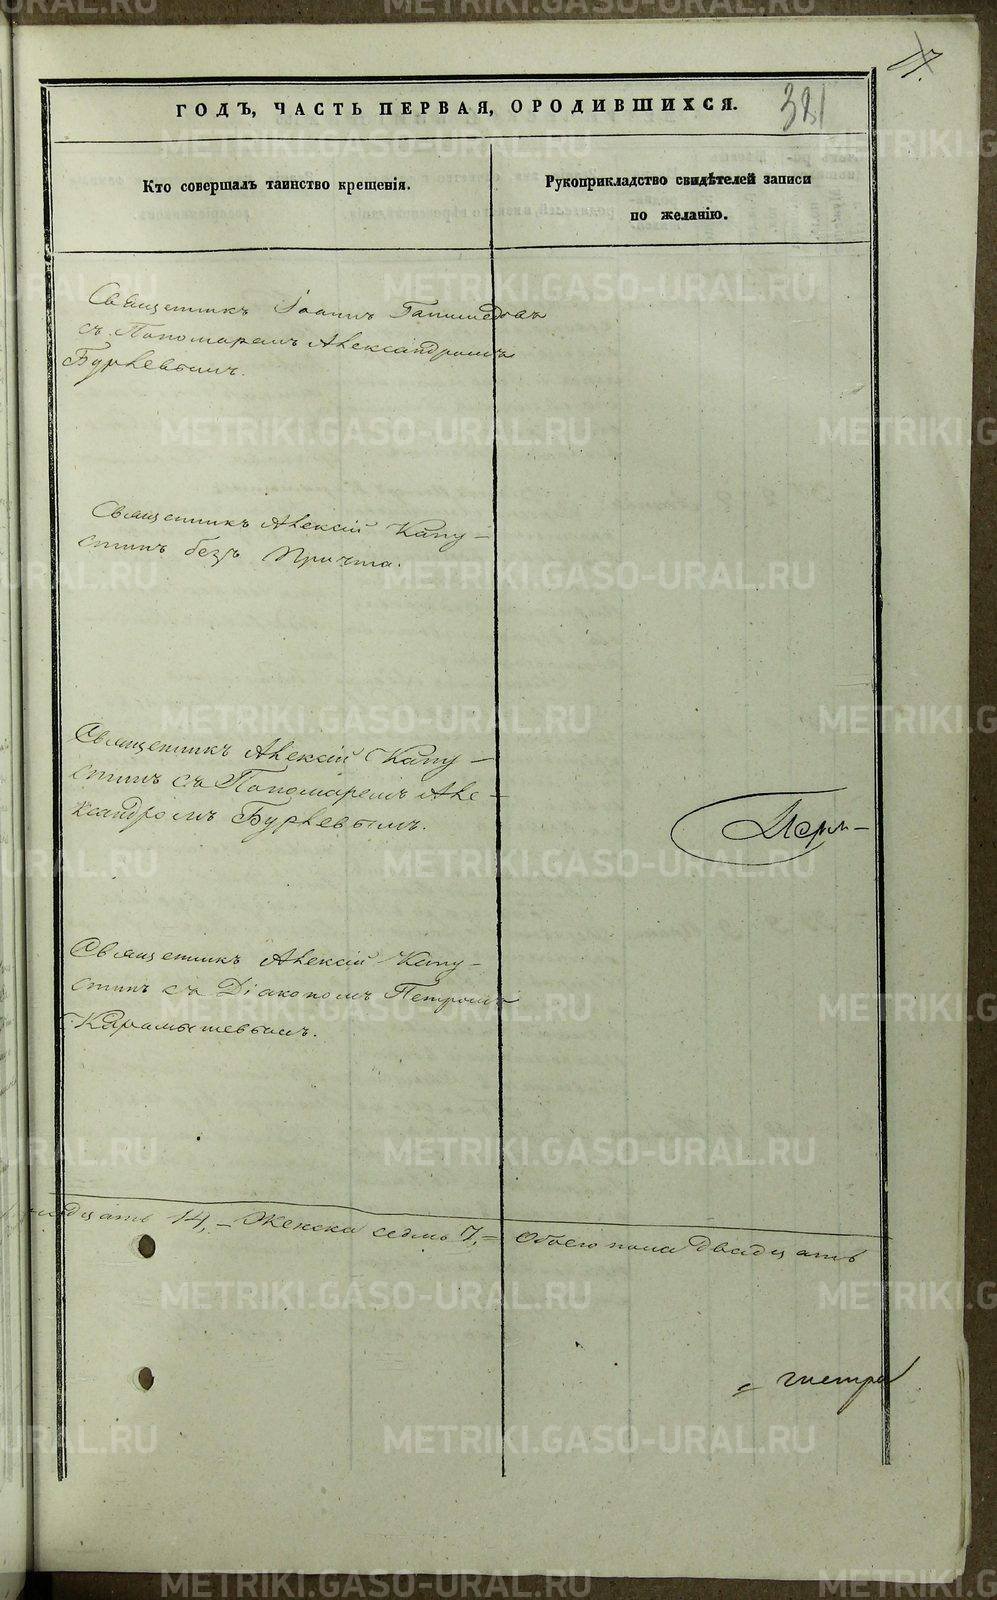 17.
381
ГОДЪ, ЧАСТЬ ПЕРВАЯ, ОРОДИВШИХСЯ.
Кто совершалъ таинство крещенія.
Рукоприкладство свидѣтелей записи
по желанію.
Священникъ Іоаннъ Ганимедовъ
съ Пономаремъ Александромъ
Бурлевымъ.
Священникъ Алексій Капу-
стинъ безъ Причта.
Священникъ Алексій Капу-
стинъ съ Пономаремъ Але-
ксандромъ Бурлевымъ.
Священникъ Алексій Капу-
стинъ съ Діакономъ Петромъ
Карамышевымъ.
14, – Женска седмь 7, = Обоего пола Двадцать
METRIKI.GASO-URAL.RU